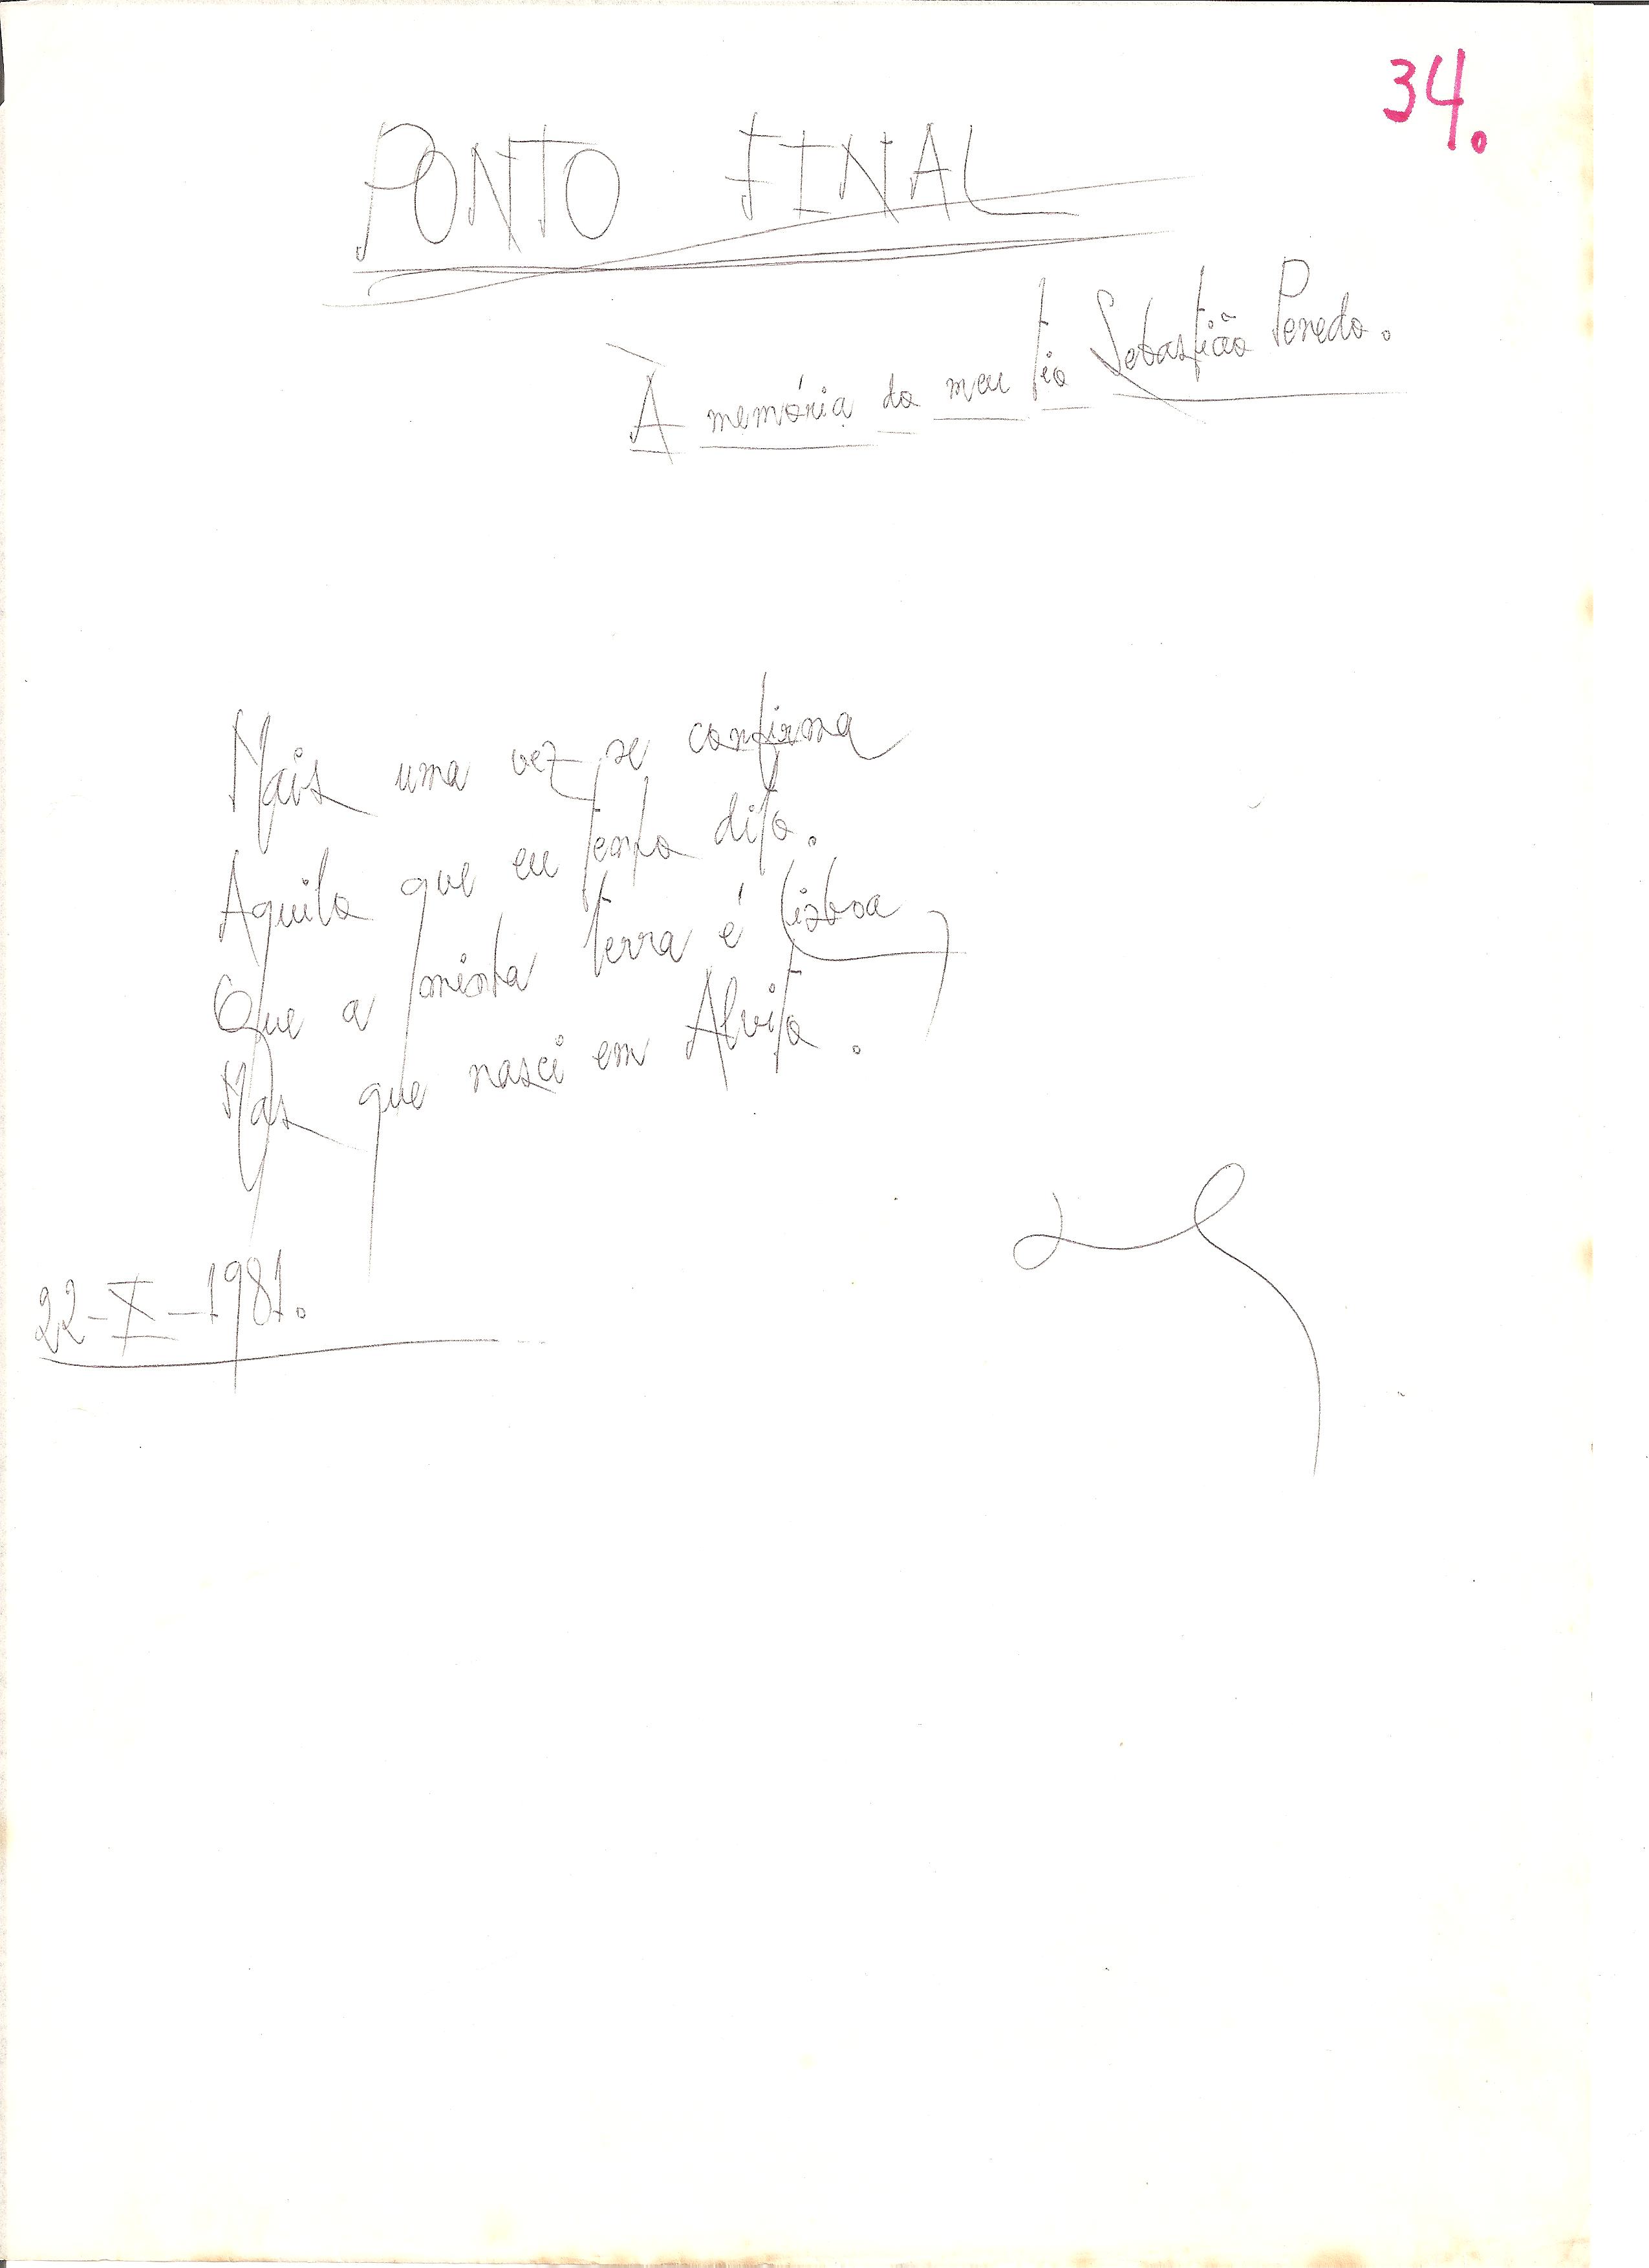 34.
PONTO FINAL
À memória do meu tio Sebastião Penedo.
Mais uma vez se confirma
Aquilo que eu tenho dito.
Que a minha terra é Lisboa
Mas que nasci em Alvito.
22-X-1981.